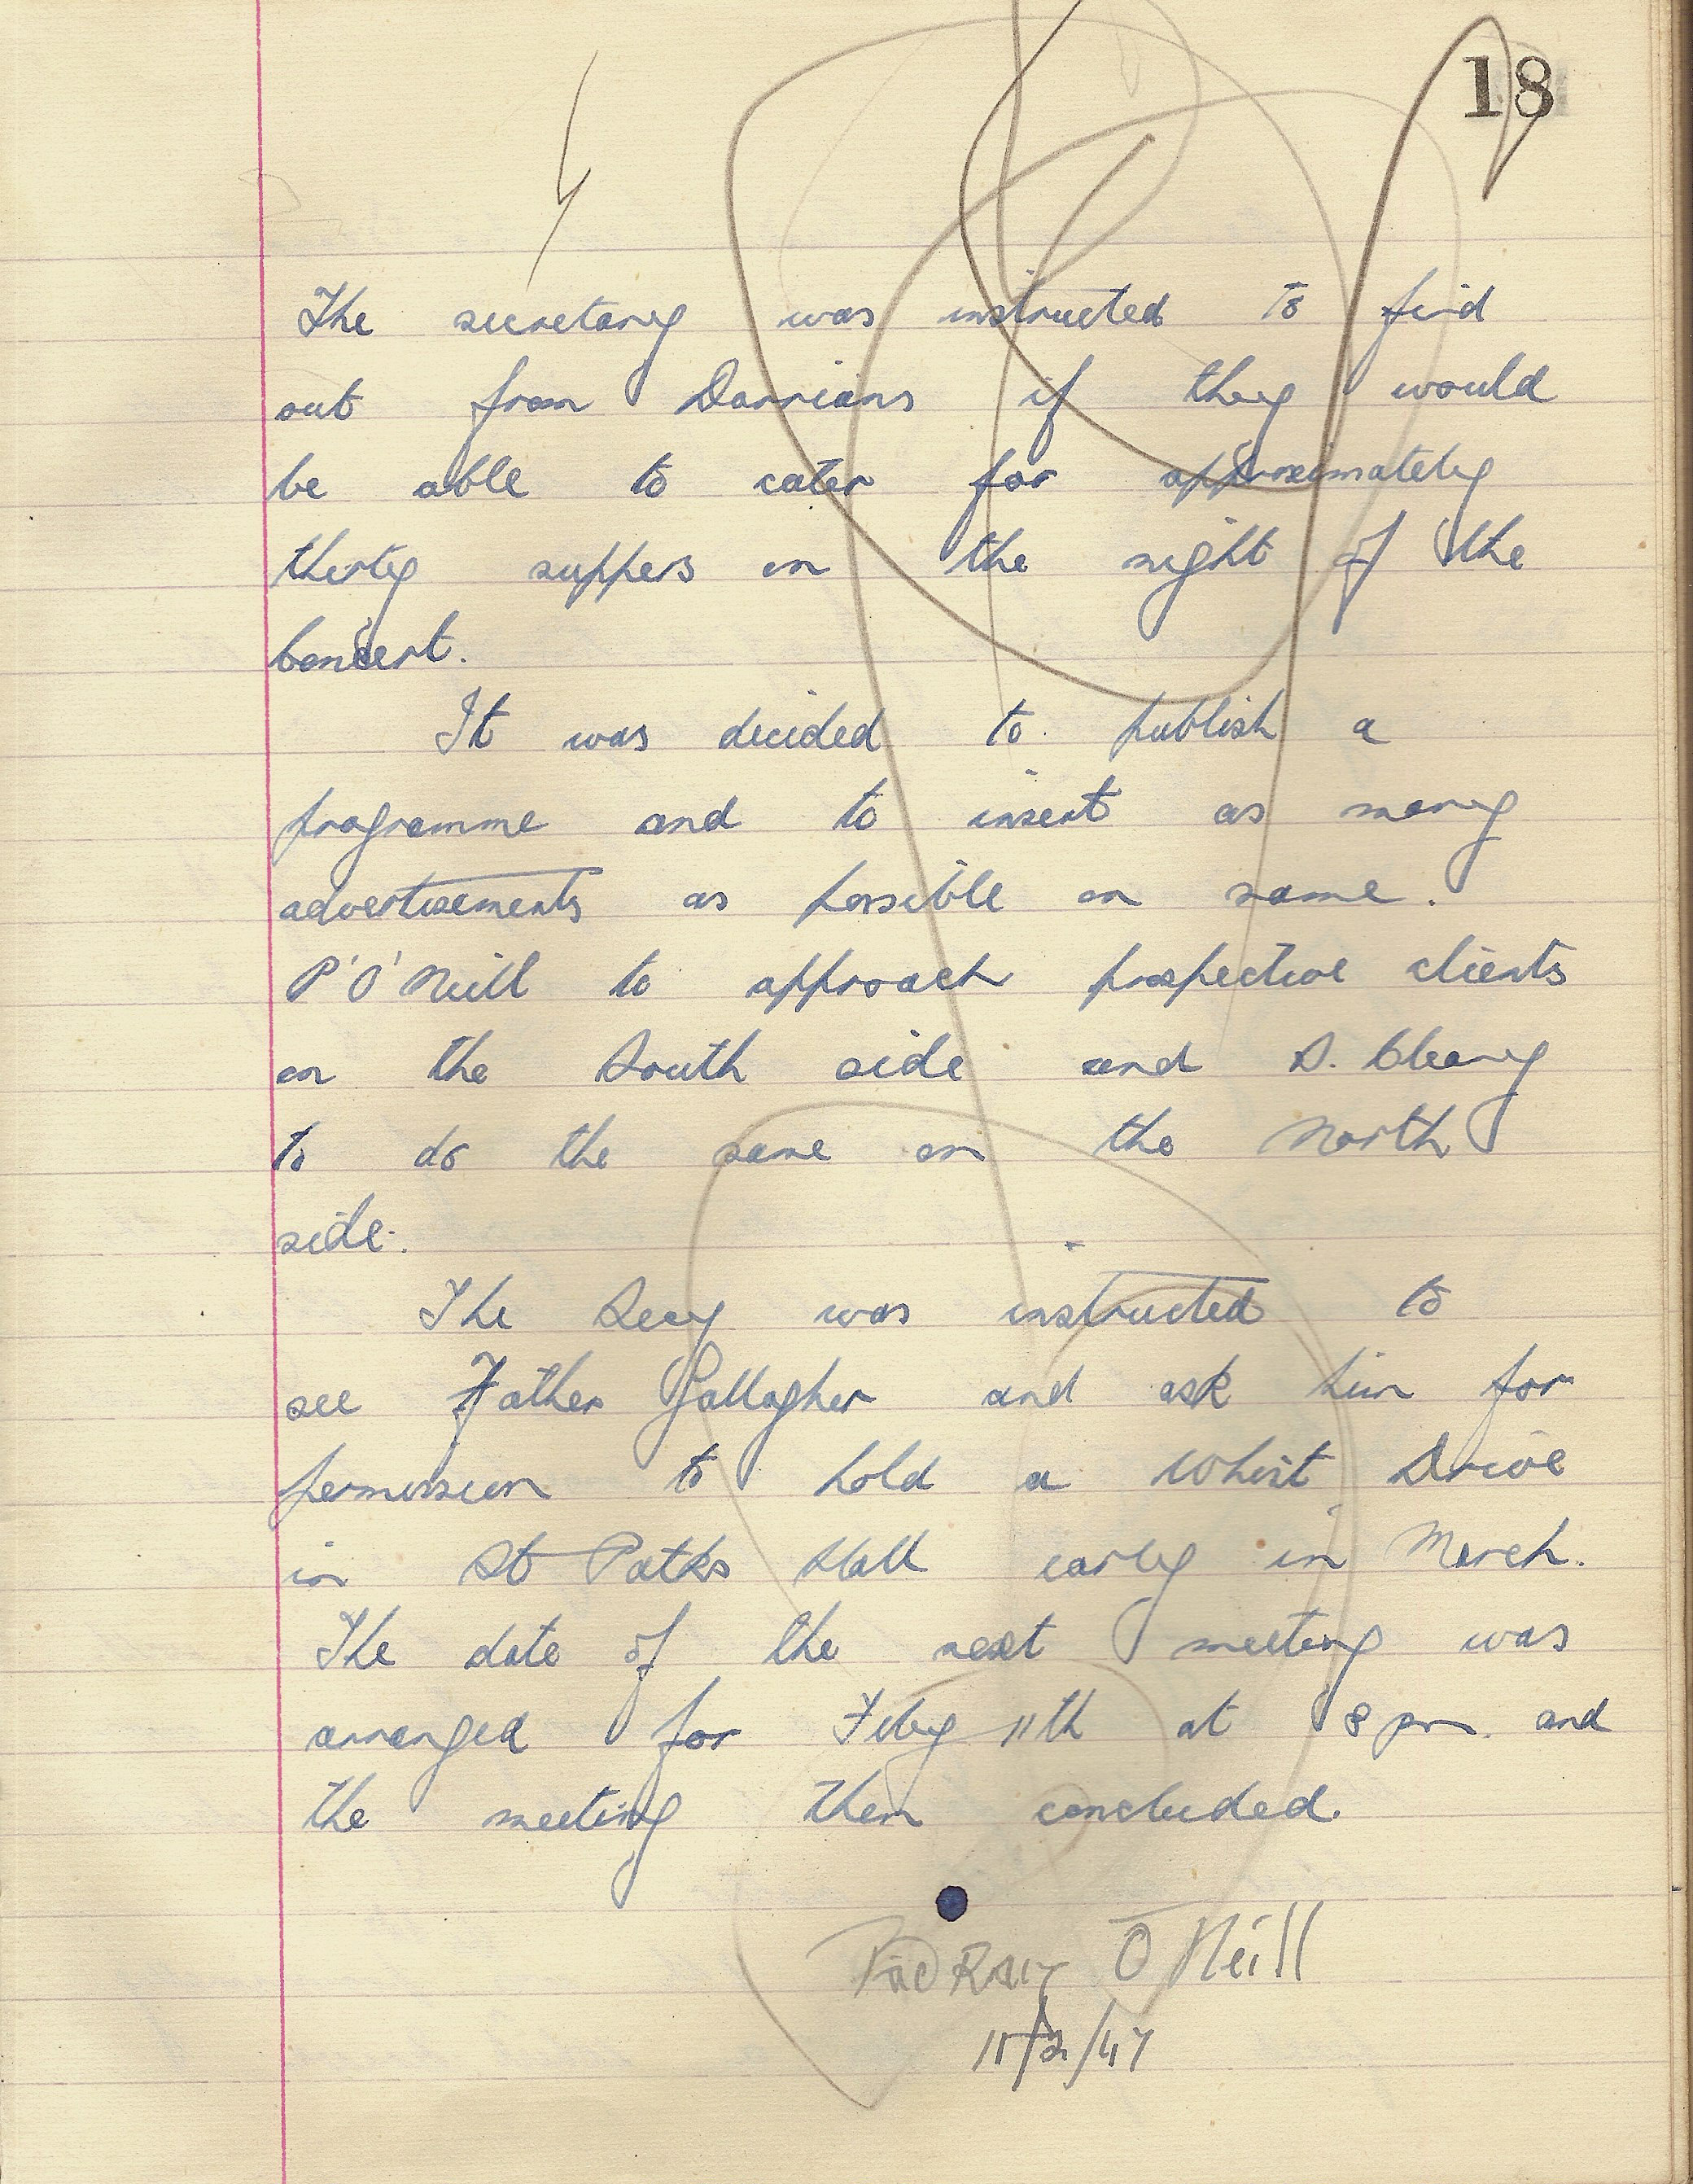 18
The secretary was instructed to find
out from Darrians if they would
be able to cater for approximately
thirty suppers on the night of the
Concert.
It was decided to publish a
programme and to insert as many
advertisements as possible on same.
P'O'Neill to approach prospective clients
on the South side and D. Cleary
to do the same on the North
side.
The Secy was instructed to
see Father Gallagher and ask him for
permission to hold a Whist Drive
in St Patks Hall early in March.
The date of the next meeting was
arranged for Feby 11th at 8 pm. and
the meeting then concluded.
Pádraig O Neill
11/2/47